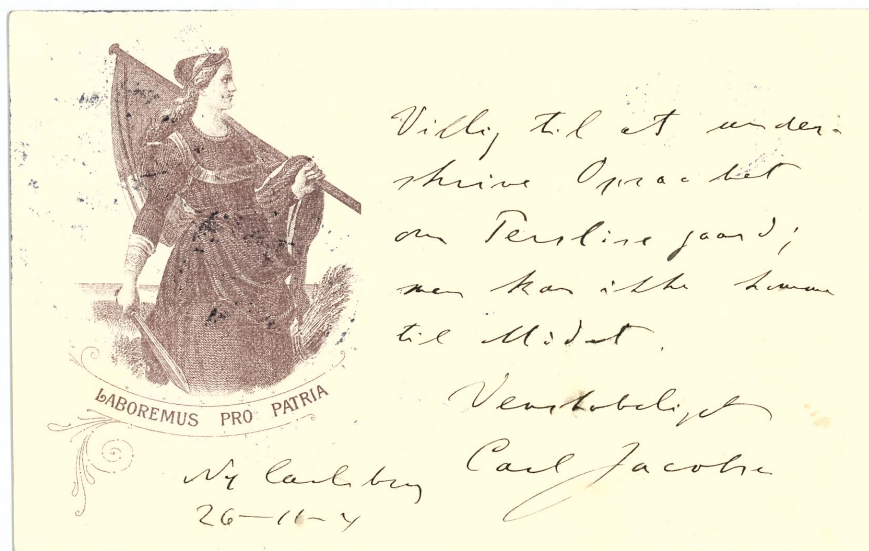 LABOREMUS PRO PATRIA
Villig til at under-
skrive Opraabet
om Terslinegaard;
men kan ikke komme
til Mødet.
Venskabeligst
Carl Jacobsen
Ny Carlsberg
26-11-4